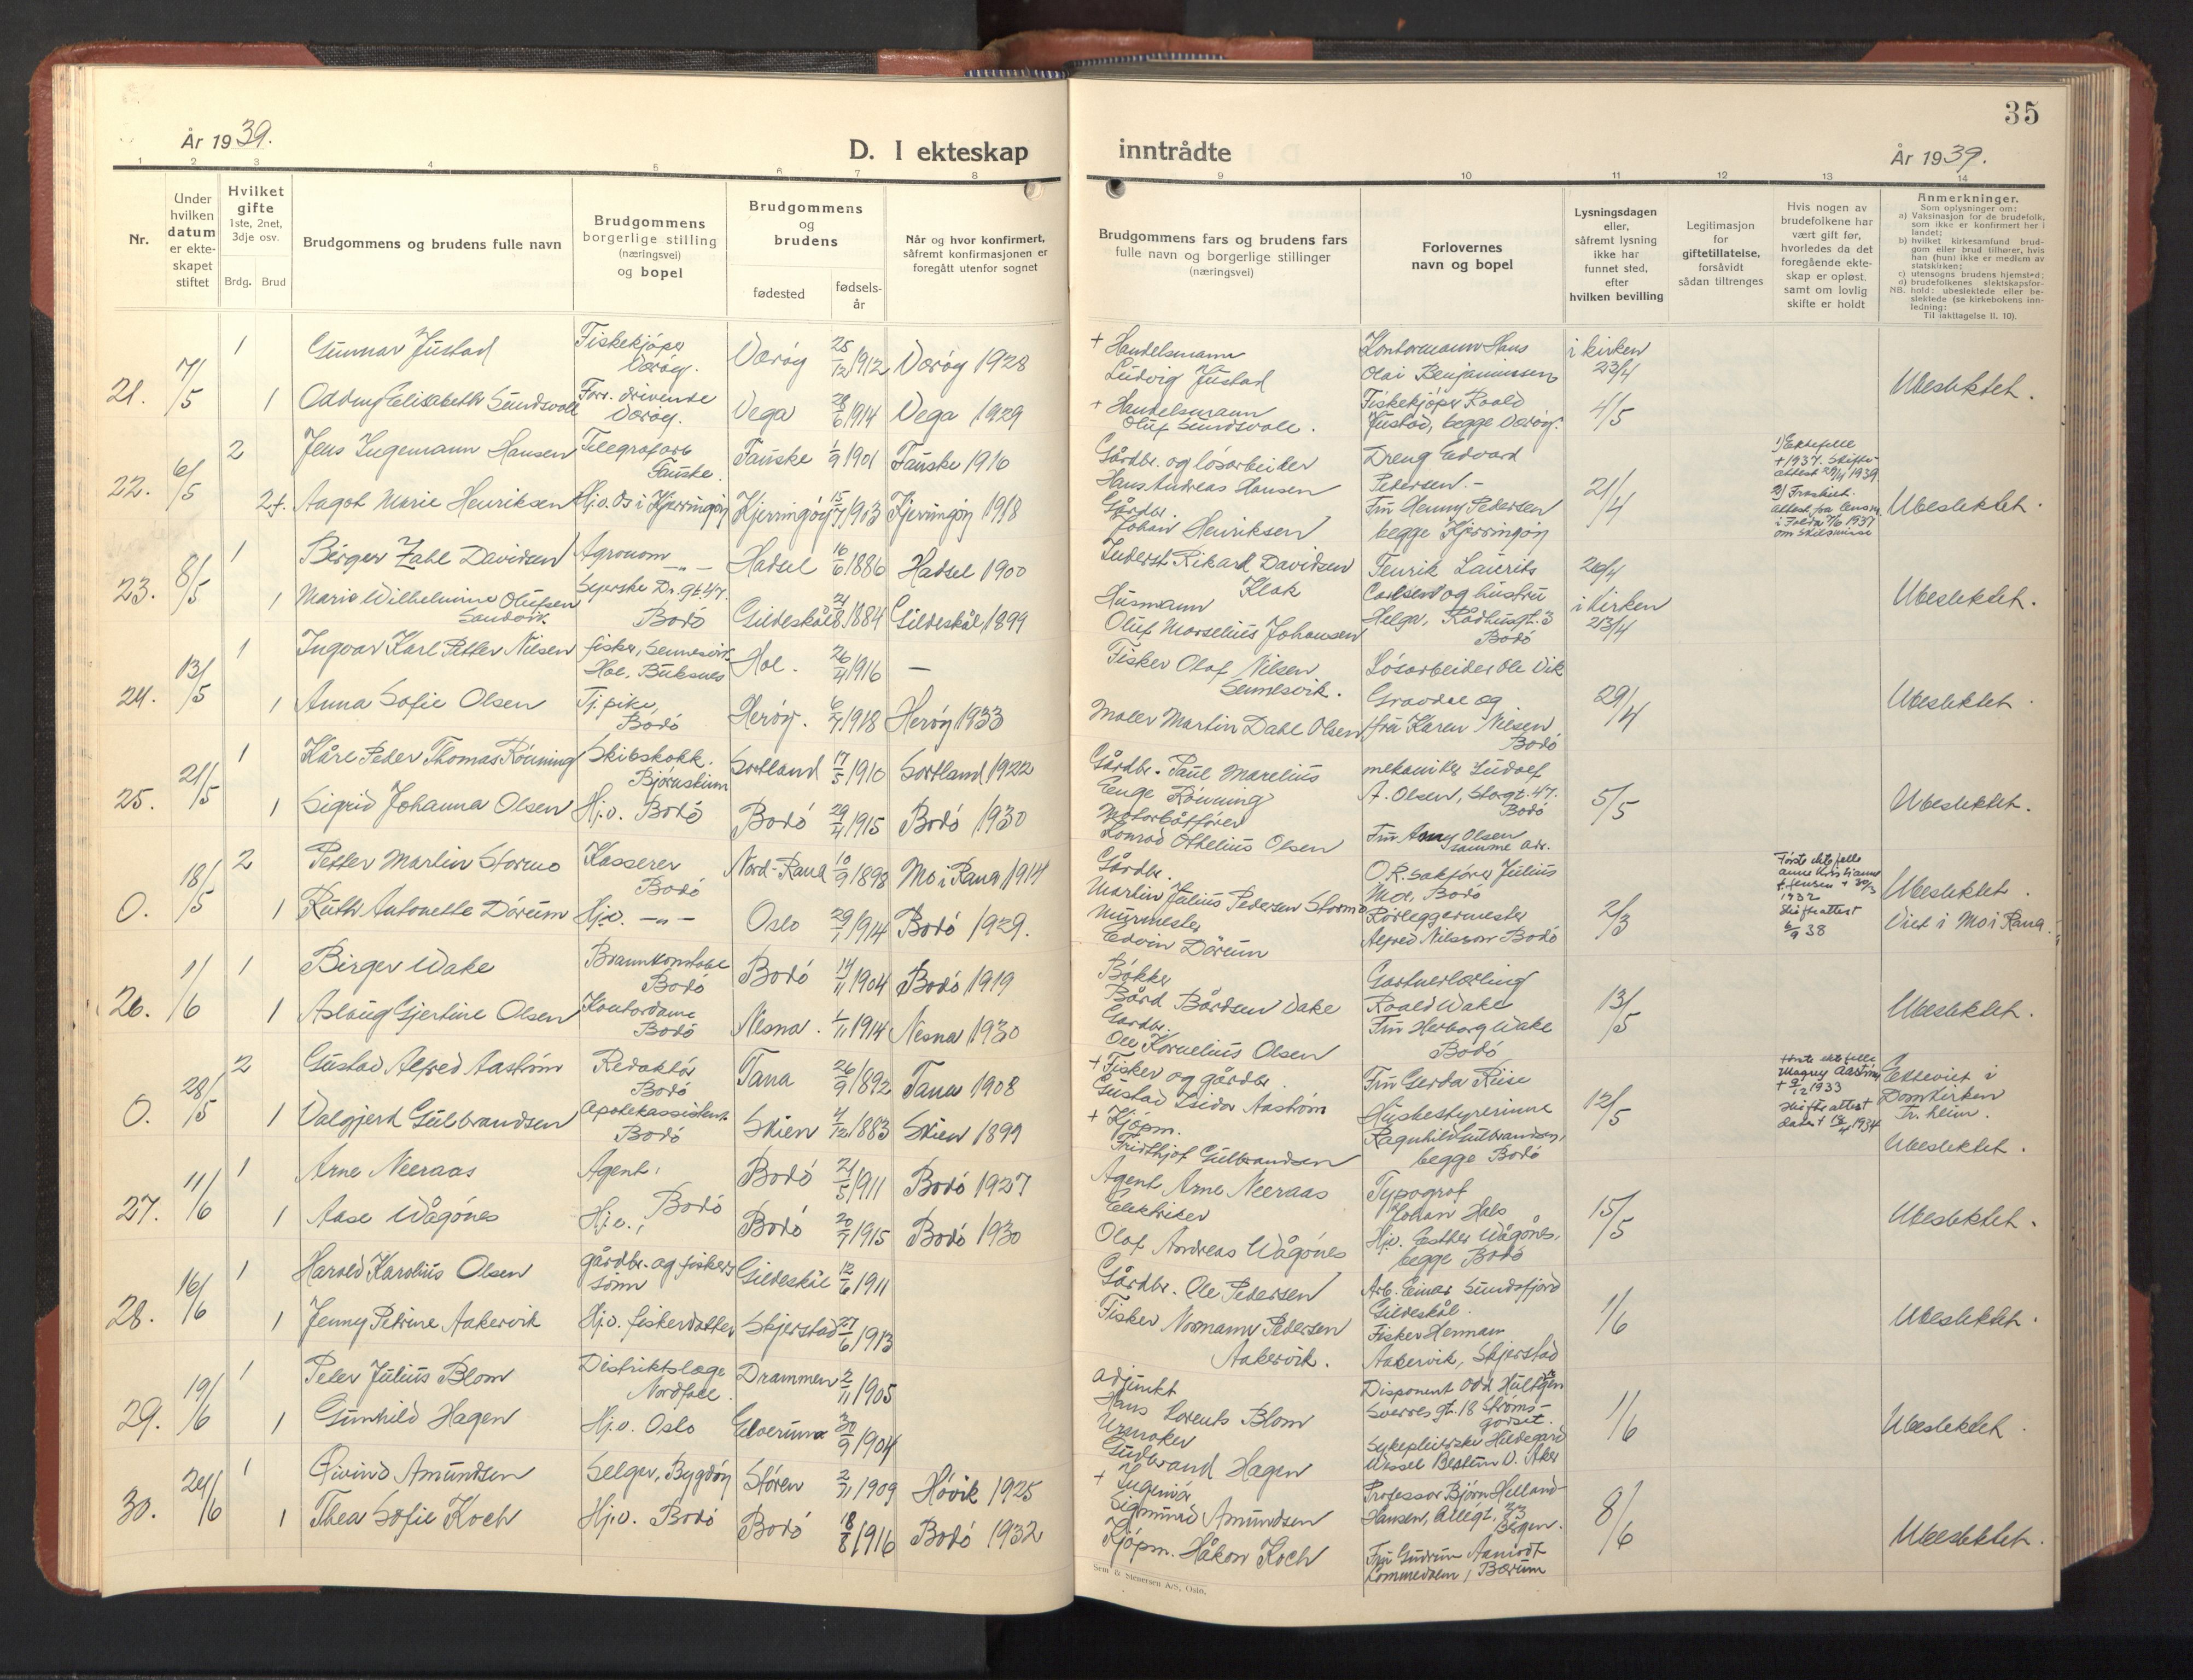 35
År 1939.
D. I ekteskap
inntrådte
År 1939.
1 2 3 4 5 6 7 8 9 10 11 12 13 14
Nr.
Under
hvilken
datum
er ekte-
skapet
stiftet
Hvilket
gifte
1ste, 2net,
3dje osv.
Brdg. Brud
Brudgommens og brudens fulle navn
Brudgommens
borgerlige stilling
(næringsvei)
og bopel
Brudgommens
og
brudens
fødested
fødsels-
år
Når og hvor konfirmert,
såfremt konfirmasjonen er
foregått utenfor sognet
Brudgommens fars og brudens fars
fulle navn og borgerlige stillinger
(næringsvei)
Forlovernes
navn og bopel
Lysningsdagen
eller,
såfremt lysning
ikke har
funnet sted,
efter
hvilken bevilling
Legitimasjon
for
giftetillatelse,
forsåvidt
sådan tiltrenges
Hvis nogen av
brudefolkene har
vært gift før,
hvorledes da det
foregående ekte-
skap er opløst.
samt om lovlig
skifte er holdt
Anmerkninger.
Som oplysninger om:
a) Vaksinasjon for de brudefolk,
som ikke er konfirmert her i
landet;
b) hvilket kirkesamfund brud-
gom eller brud tilhører, hvis
han (hun) ikke er medlem av
statskirken;
c) utensogns brudens hjemsted;
d) brudefolkenes slektskapsfor-
NB. hold: ubeslektede eller be-
slektede (se kirkebokens inn-
ledning;
Til iakttagelse II. 10).
21. 7/5
1 Gunnar Justad Fiskekjøper Værøy. Værøy 25/12 1912 Værøy 1928
1 Oddny Elisabeth Sundsvoll Forr. drivende Værøy. Vega 28/6 1914 Vega 1929
+ Handelsmann
Ludvig Justad
+ Handelsmann
Oluf Sundsvoll.
Kontormann Hans
Olai Benjaminssen
Fiskekjøper Roald
Justad, begge Værøy.
i kirken
23/4
4/5
Ubeslektet.
22. 6/5
2 Jens Ingemann Hansen Telegrafarb Fauske. Fauske 1/9 1901 Fauske 1916
2 f. Aagot Marie Henriksen Hj.v. Os i Kjerringøy Kjerringøy 15/7 1903 Kjerringøy 1918
Gårdbr. og løsarbeider
Hans Andreas Hansen
Gårdbr.
Johan Henriksen
Dreng Edvard
Pedersen.-
Fru Henny Pedersen
begge Kjerringøy
21/4
1) Ektefelle
+ 1937. Skifte-
attest 29/4 1939.
2) Fraskilt.
attest fra Lensm.
i Folda 7/6 1937
om skilsmisse
Ubeslektet.
23. 8/5
1 Birger Zahl Davidsen Agronom -„- Hadsel 16/6 1886 Hadsel 1900
1 Marie Wilhelmine Olufsen Sandvik. Syerske Dr. gt. 47. Bodø Gildeskål 21/8 1884 Gildeskål 1899
Inderst Rikard Davidsen
Klok
Husmann
Oluf Marselius Johansen
Fenrik Laurits
Carlsen og hustru
Helga, Rådhusgt. 3
Bodø
26/4
i kirken
23/4
Ubeslektet.
24. 13/5
1 Ingvar Karl Petter Nilsen fisker, Sennesvik. Hol, Buksnes Hol. 26/4 1916 —
1 Anna Sofie Olsen Tj. pike, Bodø Herøy. 6/7 1918 Herøy 1933
Fisker Olaf Nilsen
Sennesvik.
Maler Martin Dahl Olsen
Løsarbeider Ole Vik
Gravdal og
fru Karen Nilsen
Bodø
29/4
Ubeslektet.
25. 21/5
1 Kåre Peder Thomas Rönning Skibskokk. Björnskinn Sortland 17/5 1910 Sortland 1922
1 Sigrid Johanna Olsen Hj.v. Bodø Bodø 29/4 1915 Bodø 1930
Gårdbr. Paul Marelius
Enge Rönning
Motorbåtfører
Konrad Othelius Olsen
mekaniker Ludolf
A. Olsen, Storgt. 47.
Bodø
Fru Anny Olsen
samme adr.
5/5
Ubeslektet.
0. 18/5
2 Petter Martin Stormo Kasserer Bodø Nord-Rana 10/9 1898 Mo i Rana 1914
1 Ruth Antonette Dørum Hj.v. -„- Oslo 29/1 1914 Bodø 1929.
Gårdbr.
Martin Julius Pedersen Stormo
Murmester
Edvin Dørum
O.R. sakfører Julius
Moe, Bodø
Rørleggermester
Alfred Nilsson Bodø
2/3
Første ektefelle
Anna Kristianne
f. Jensen + 30/3
1932
Skifteattest
6/9 38
Ubeslektet.
Viet i Mo i Rana.
26. 1/6
1 Birger Wake Brannkonstabel Bodø Bodø 14/11 1904 Bodø 1919
1 Aslaug Gjertine Olsen Kontordame Bodø Nesna. 1/11 1914 Nesna 1930
Bøkker
Bård Bårdsen Wake
Gårdbr.
Ole Kornelius Olsen
Gartnerlærling
Roald Wake
Fru Herborg Wake
Bodø
13/5
Ubeslektet.
0. 28/5
2 Gustav Alfred Aastrøm Redaktør Bodø Tana 26/9 1892 Tana 1908
1 Valgjerd Gulbrandsen Apotekassistent. Bodø Skien 4/12 1883 Skien 1899
+ Fisker og gårdbr.
Gustav Isidor Aastrøm
+ Kjøpm.
Fridthjof Gulbrandsen
Fru Gerda Riise
Husbestyrerinne
Ragnhild Gulbrandsen,
begge Bodø
12/5
første ektefelle
Magny Aastrøm
+ 9/12 1933
Skifteattest
datert 18/4 1934
Ektevict i
Domkirken
Tr. heim.
Ubeslektet.
27. 11/6
1 Arne Neeraas Agent, Bodø Bodø 21/5 1911 Bodø 1927
1 Aase Wågönes Hj.v., Bodø 20/7 1915 Bodø 1930
Agent Arne Neeraas
Elektriker
Olaf Andreas Wågönes
Typograf
Johan Hals
Hjv. Esther Wågönes,
begge Bodø
15/5
Ubeslektet.
28. 16/6
1 Harald Karolius Olsen gårdbr. og fisker sønn Gildeskål 12/6 1911
1 Jenny Petrine Aakervik Hj.v. fiskerdatter Skjerstad 27/6 1913
Gårdbr. Ole Pedersen
Fisker Normann Pedersen
Aakervik.
Arb. Einar Sundsfjord
Gildeskål.
Fisker Herman
Aakervik, Skjerstad
1/6
Ubeslektet.
29. 19/6
1 Peter Julius Blom Distriktslæge Nordfold. Drammen 2/11 1905
1 Gunhild Hagen Hj.v. Oslo Elverum 30/9 1904
Adjunkt
Hans Lorents Blom
Urmaker
Gudbrand Hagen
Disponent Odd Hultgren
Sverres gt. 18 Strøms-
godset.
Sykepleierske Hildegard
Wessel Bestum V. Aker
1/6
Ubeslektet.
30. 24/6
1 Øivind Amundsen Selger, Bygdøy Støren 2/11 1909 Høvik 1925
1 Thea Sofie Koch Hj.v. Bodø Bodø 18/8 1916 Bodø 1932
+ Ingeniør
Sigmund Amundsen
Kjøpm. Håkon Koch
Professor Bjørn Helland-
Hansen, Allégt. 33
Bergen.
Fru Gudrun Aamodt
Lommedalen, Bærum
8/6
Ubeslektet.
Sem & Stenersen A/S, Oslo.